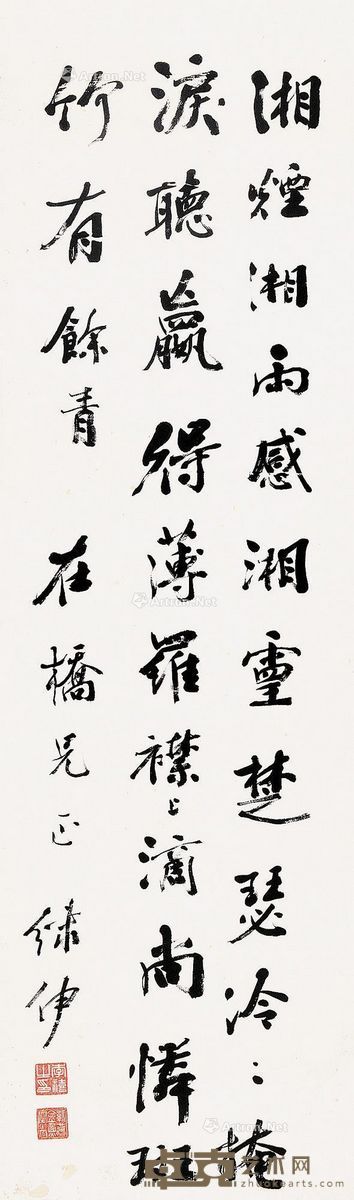 湘煙湘雨感湘靈楚瑟泠〻掩
淚聽贏得薄羅襟上滴尚憐斑
竹有餘青
在橋兄正